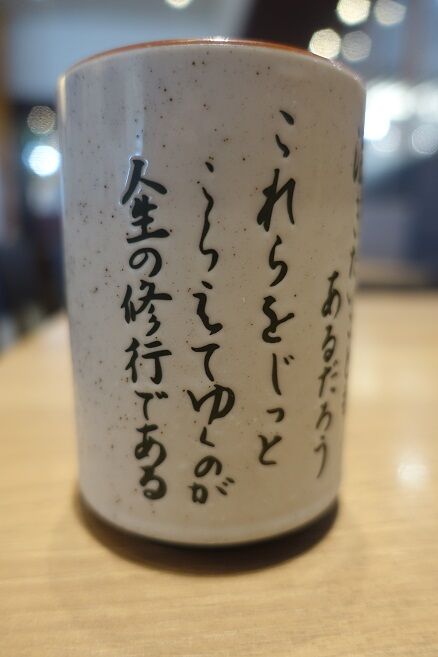 あるだろう
これらをじっと
こらえてゆくのが
人生の修行である